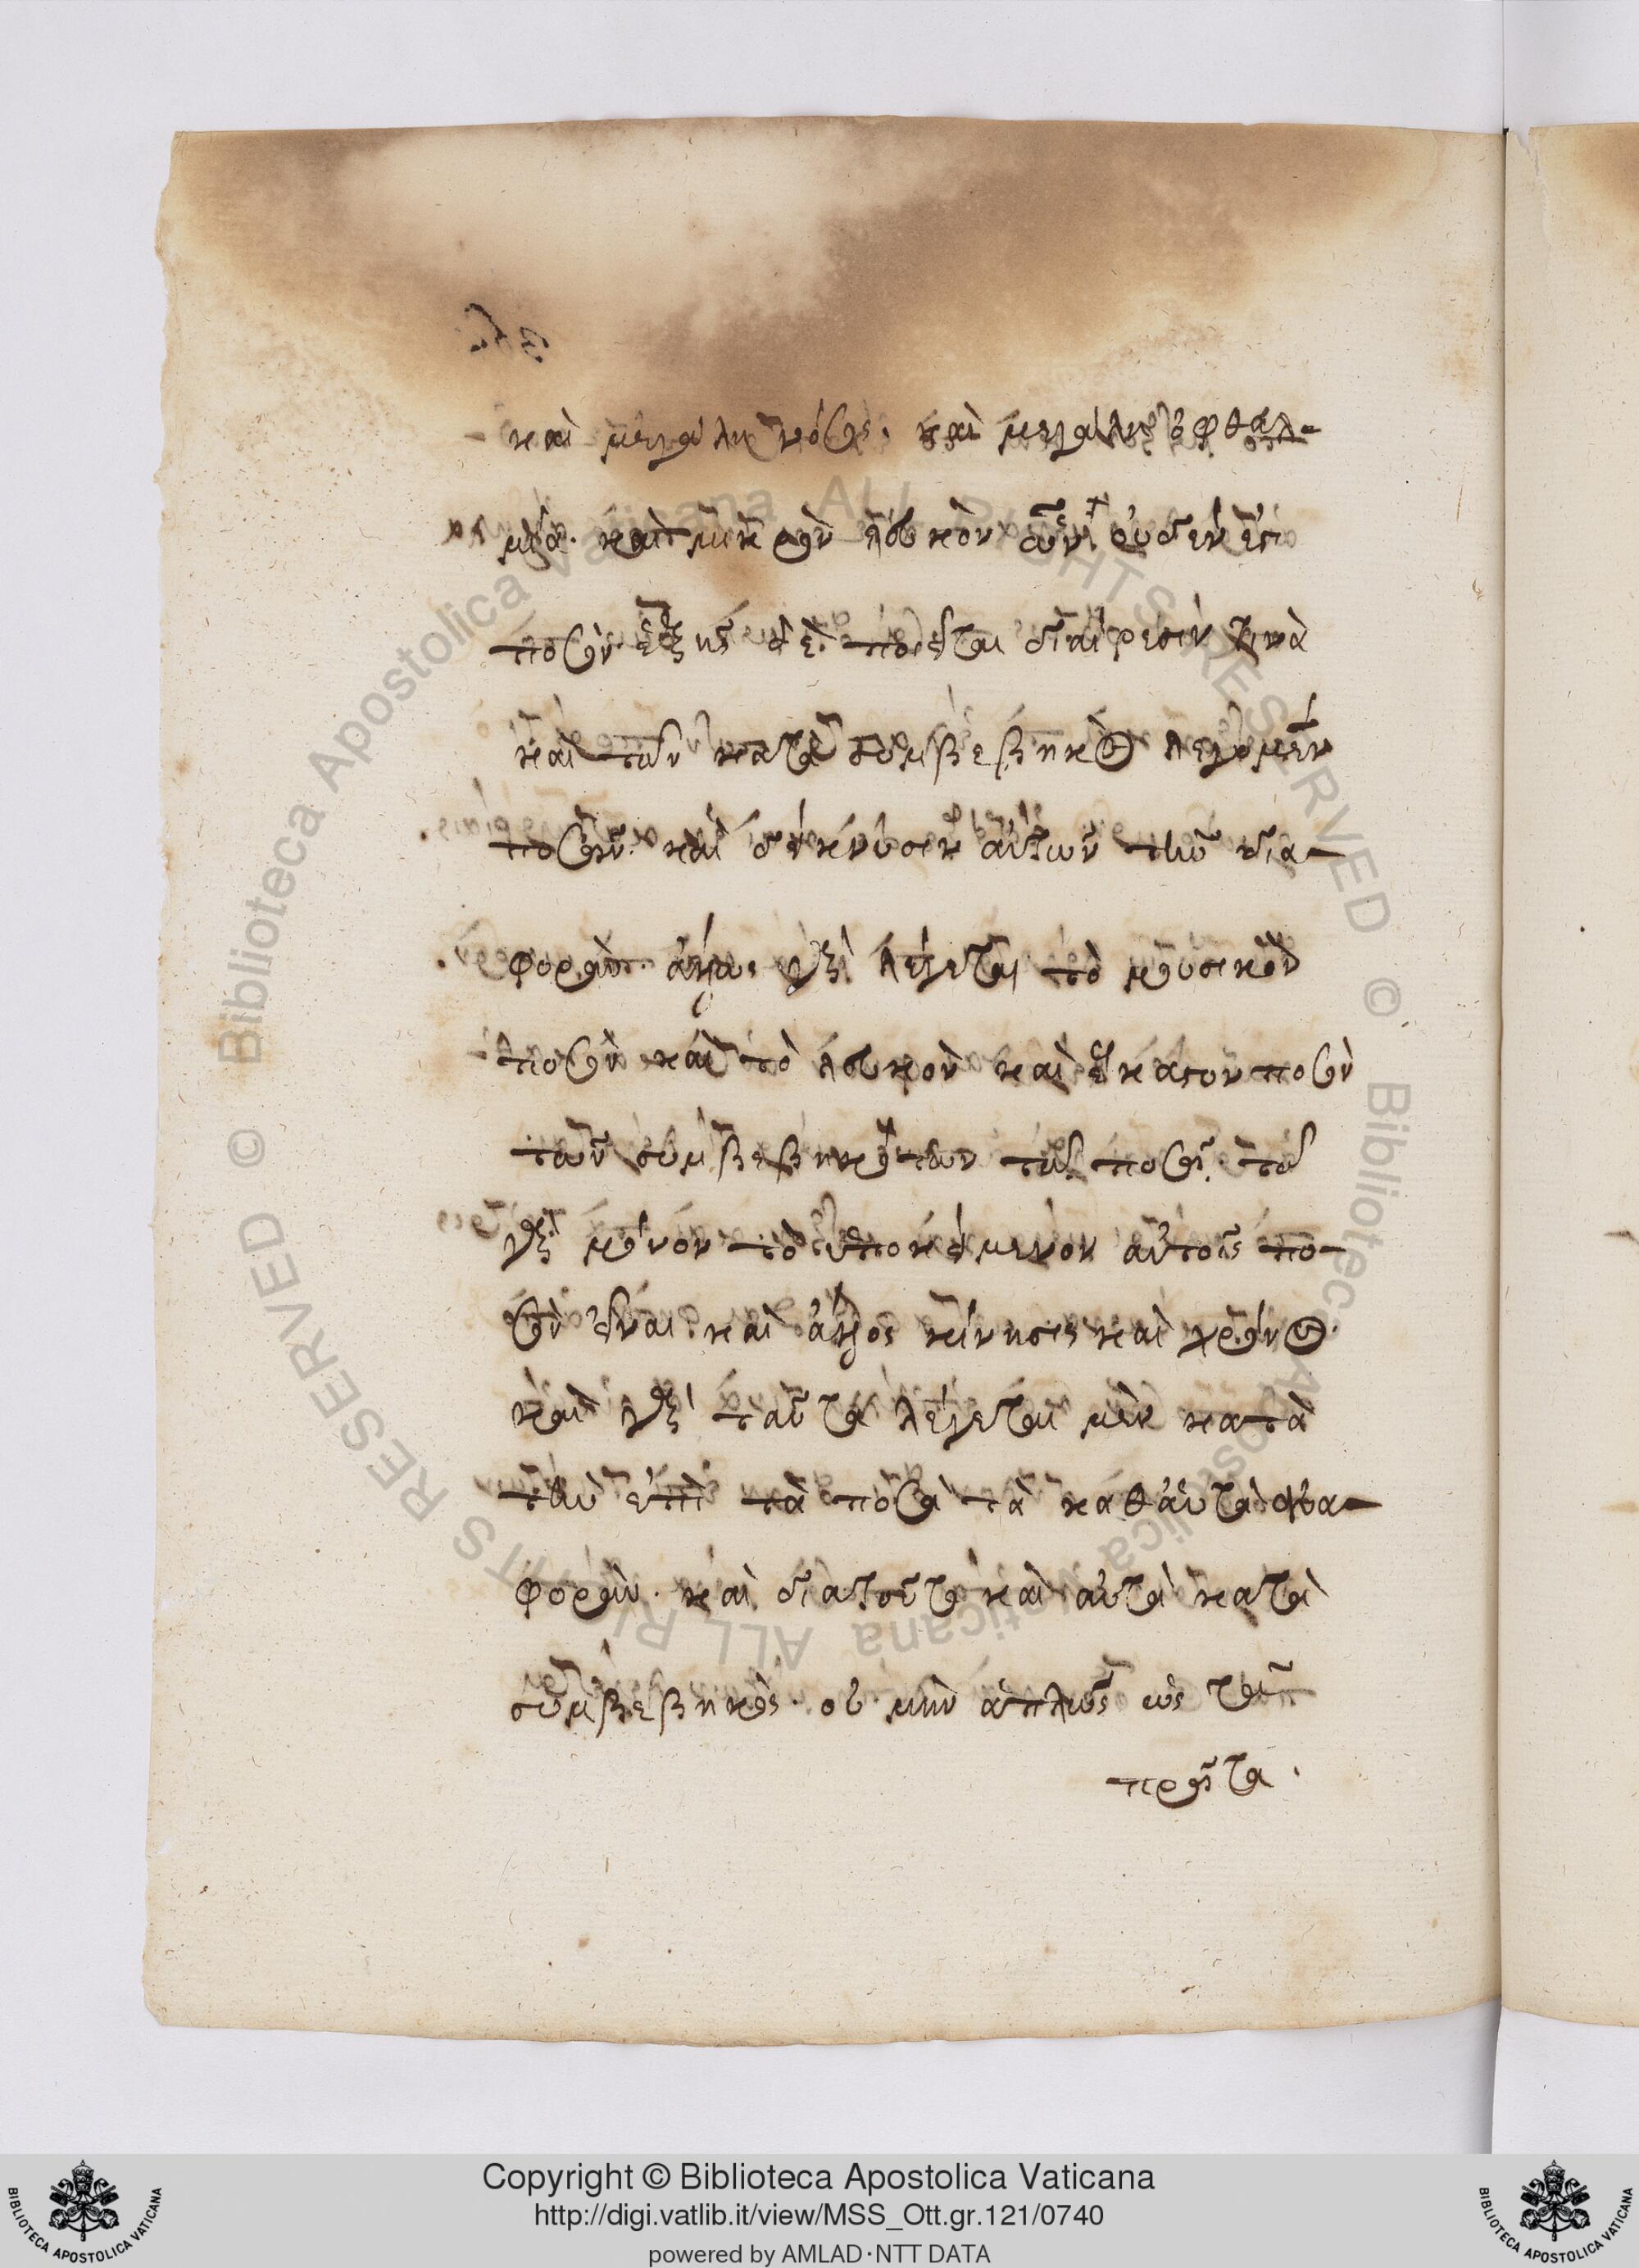 καὶ μεγάλη νόσος. καὶ μεγάλη ὀφθαλ-
μία. καὶ μικρὸν λευκὸν οὐδέν ἐστι
ποσόν. ἑξῆς δὲ ποιεῖται διαίρεσιν τινὰ
καὶ τῶν κατὰ συμβεβηκὸς λεγομένων
ποσῶν. καὶ δείκνυσιν αὐτῶν τὴν δια-
φοράν. ἄλλως γὰρ λέγεται τὸ μουσικὸν
ποσὸν καὶ τὸ λευκὸν καὶ ἕκαστον ποσὸν
τῶν συμβεβηκότων τῶ ποσῶ. τῶ
γὰρ μόνον τὸ ὑποκείμενον αὐτοῖς πο-
σὸν εἶναι. καὶ ἄλλως κίνησις καὶ χρόνος.
καὶ γὰρ ταῦτα λέγεται μὲν κατὰ
τὴν ἐπὶ τὰ ποσὰ τὰ καθ' αὑτὰ ἀνα-
φοράν. καὶ διὰ τοῦτο καὶ αὐτὰ κατὰ
συμβεβηκός. οὐ μὴν ἁπλῶς ὡς τὰ
πρῶτα.
Copyright © Biblioteca Apostolica Vaticana
http://digi.vatlib.it/view/MSS_Ott.gr.121/0740
powered by AMLAD·NTT DATA
BIBLIOTECA APOSTOLICA VATICANA
BIBLIOTECA APOSTOLICA VATICANA
© Biblioteca Apostolica Vaticana ALL RIGHTS RESERVED
© Biblioteca Apostolica Vaticana ALL RIGHTS RESERVED